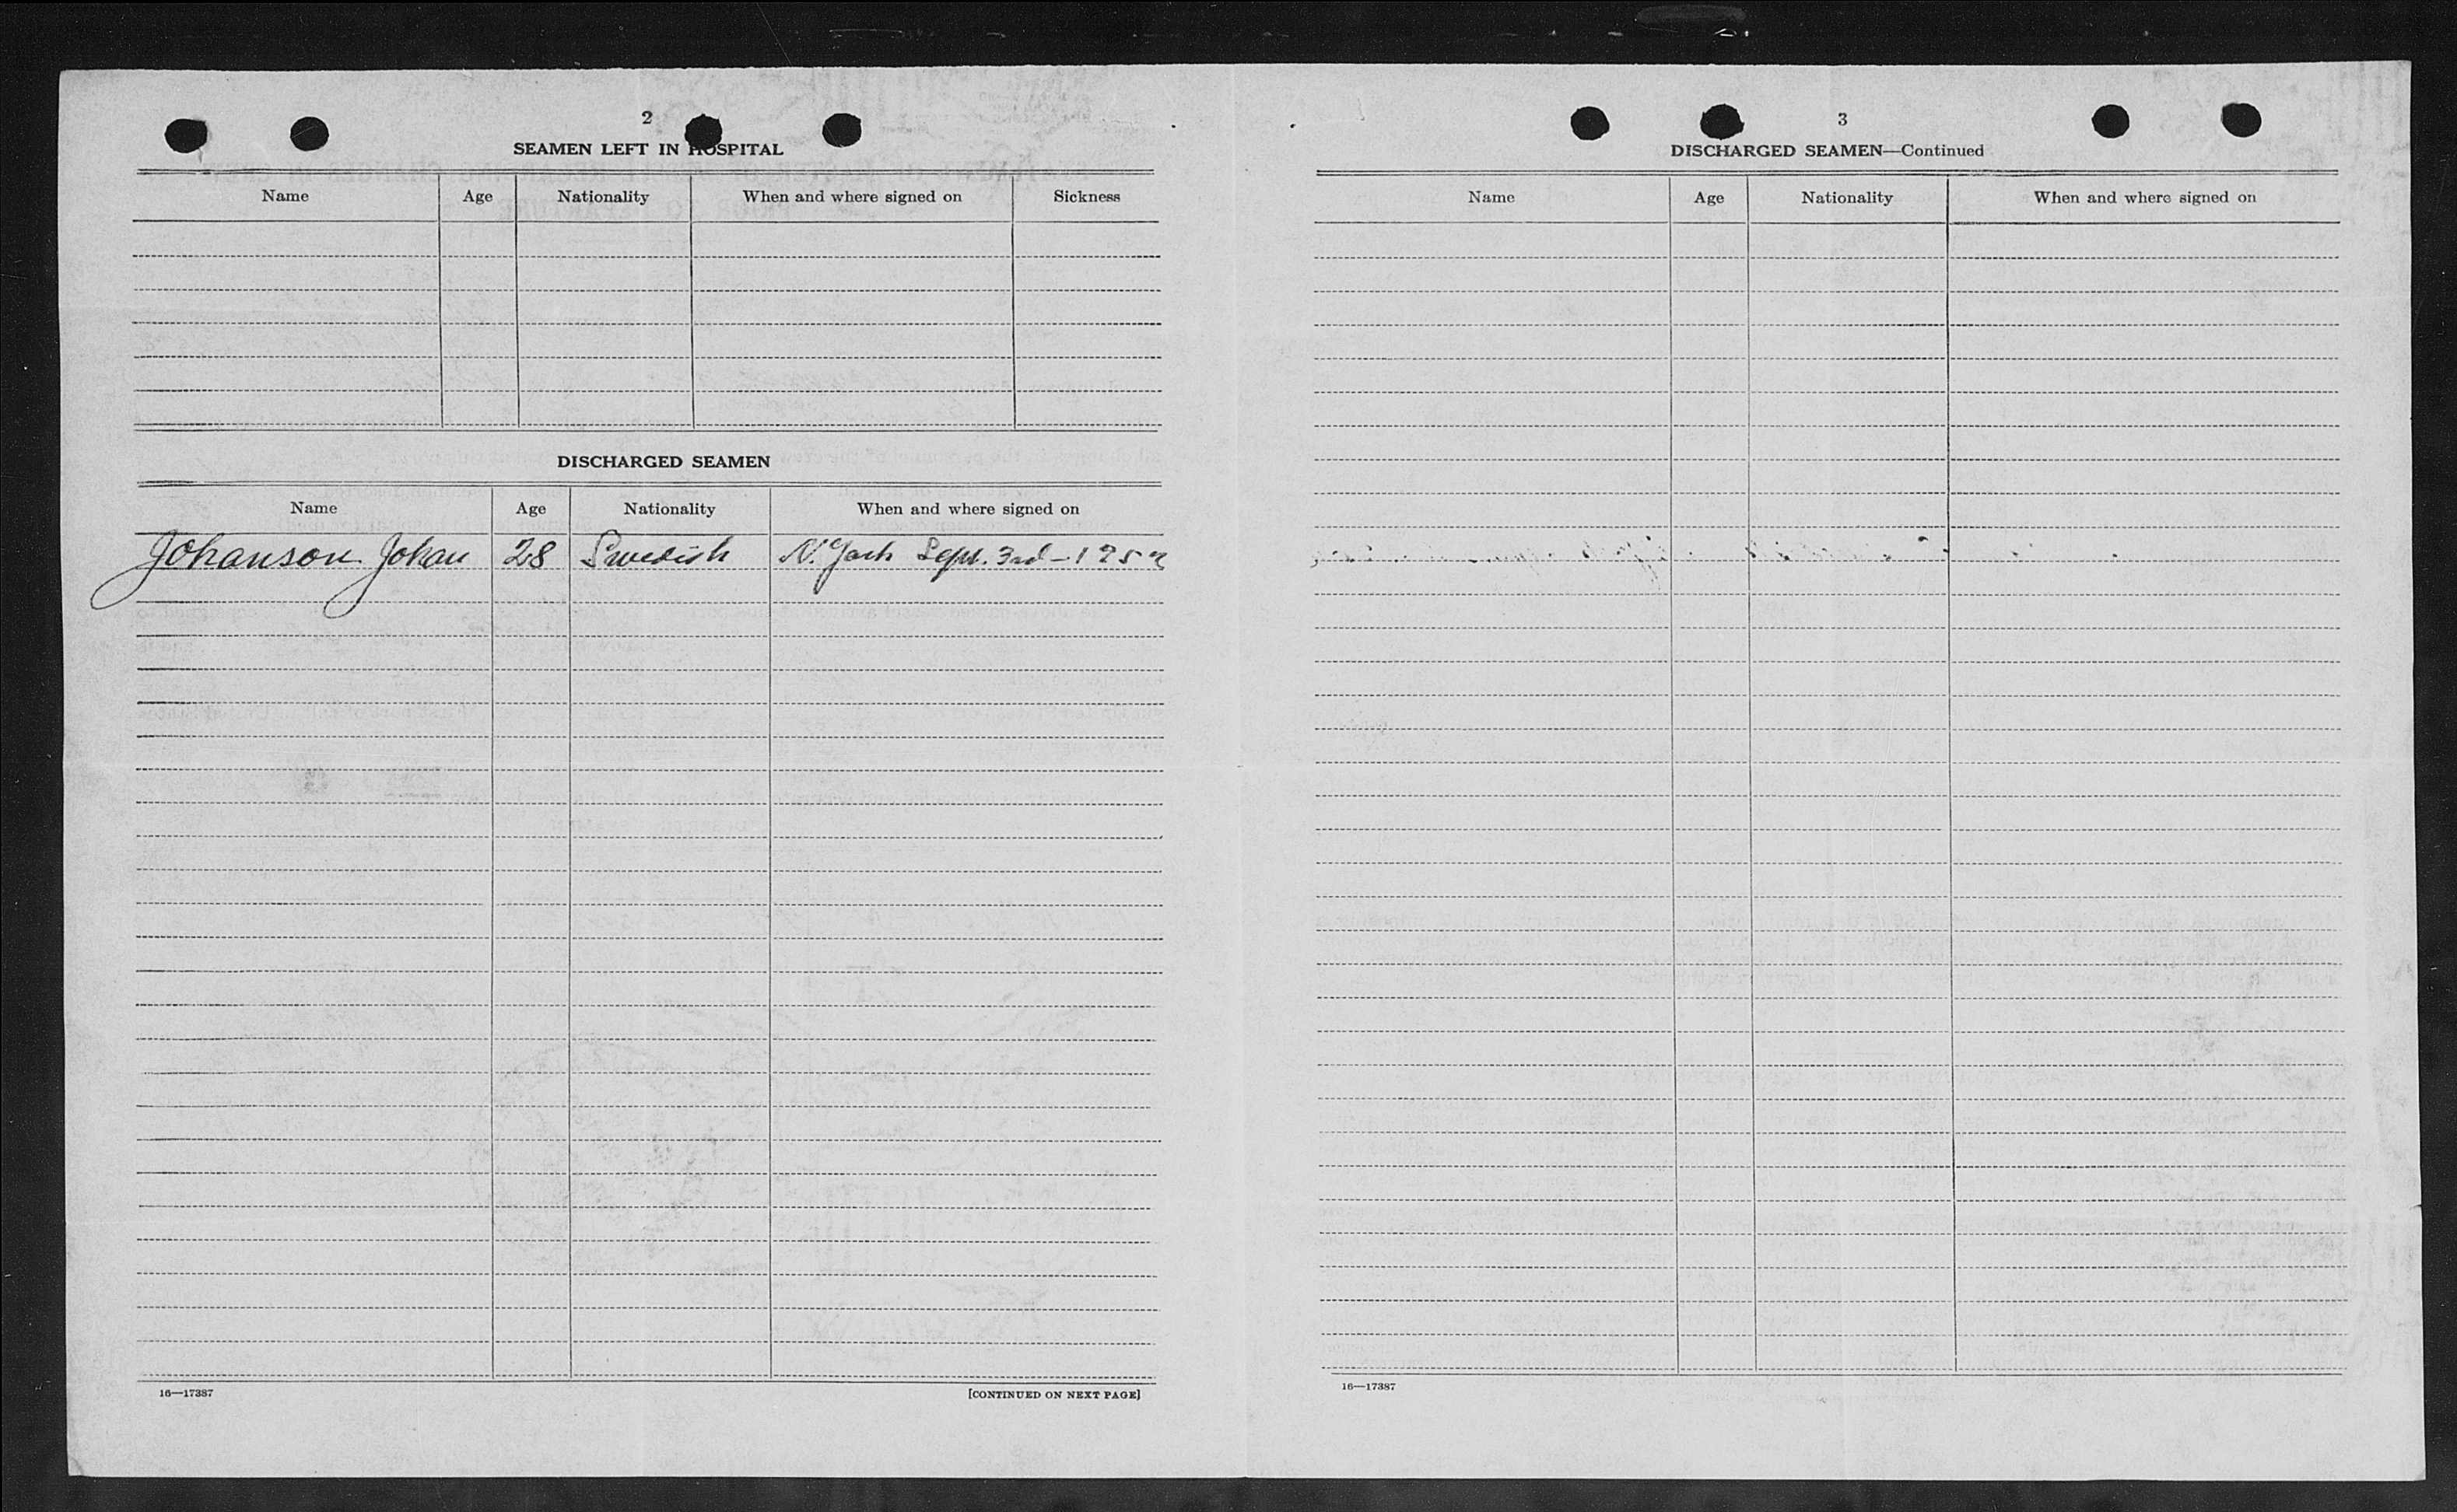 2
SEAMEN LEFT IN HOSPITAL
Name Age Nationality When and where signed on Sickness
DISCHARGED SEAMEN
Name Age Nationality When and where signed on
Johanson Johan 28 Swedish N. York Sept. 3rd - 1952
16—17387 [CONTINUED ON NEXT PAGE]
3
DISCHARGED SEAMEN—Continued
Name Age Nationality When and where signed on
16—17387